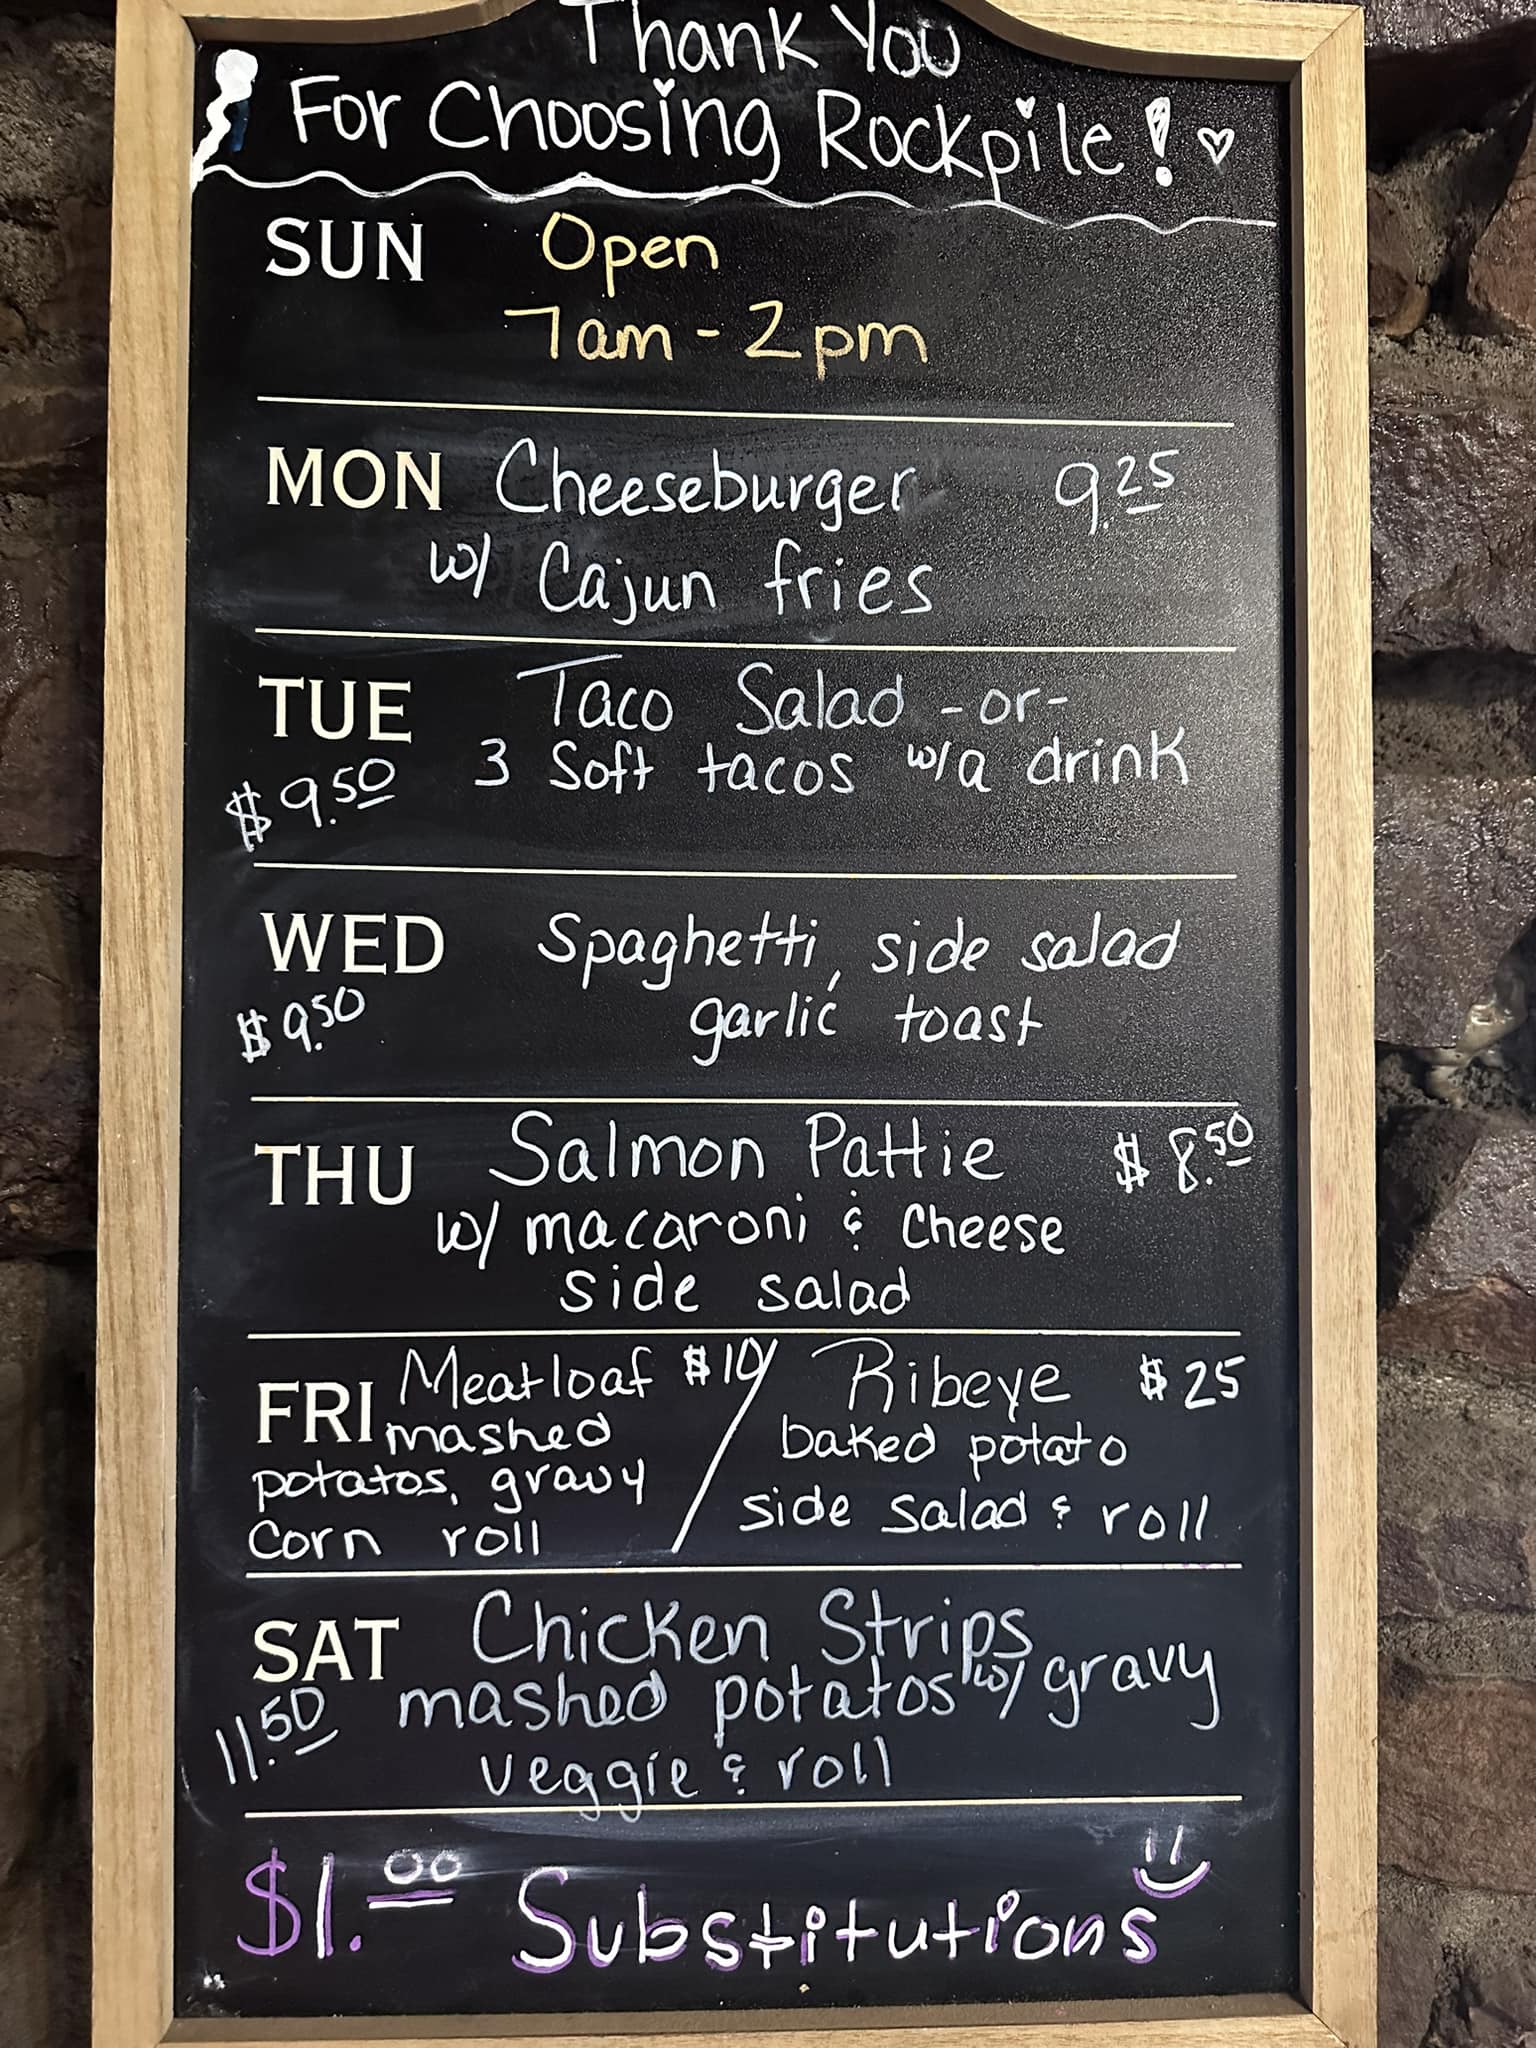 Thank You
For Choosing Rockpile!
SUN Open
7am - 2pm
MON Cheeseburger 9.25
w/ Cajun fries
TUE Taco Salad -or-
$9.50 3 Soft tacos w/a drink
WED Spaghetti, side salad
$9.50 garlic toast
THU Salmon Pattie $8.50
w/ macaroni & Cheese
side salad
FRI Meatloaf $10/
mashed
potatos, gravy
Corn roll
Ribeye $25
baked potato
side salad & roll
SAT Chicken Strips
11.50 mashed potatos w/ gravy
veggie & roll
$1.00 Substitutions